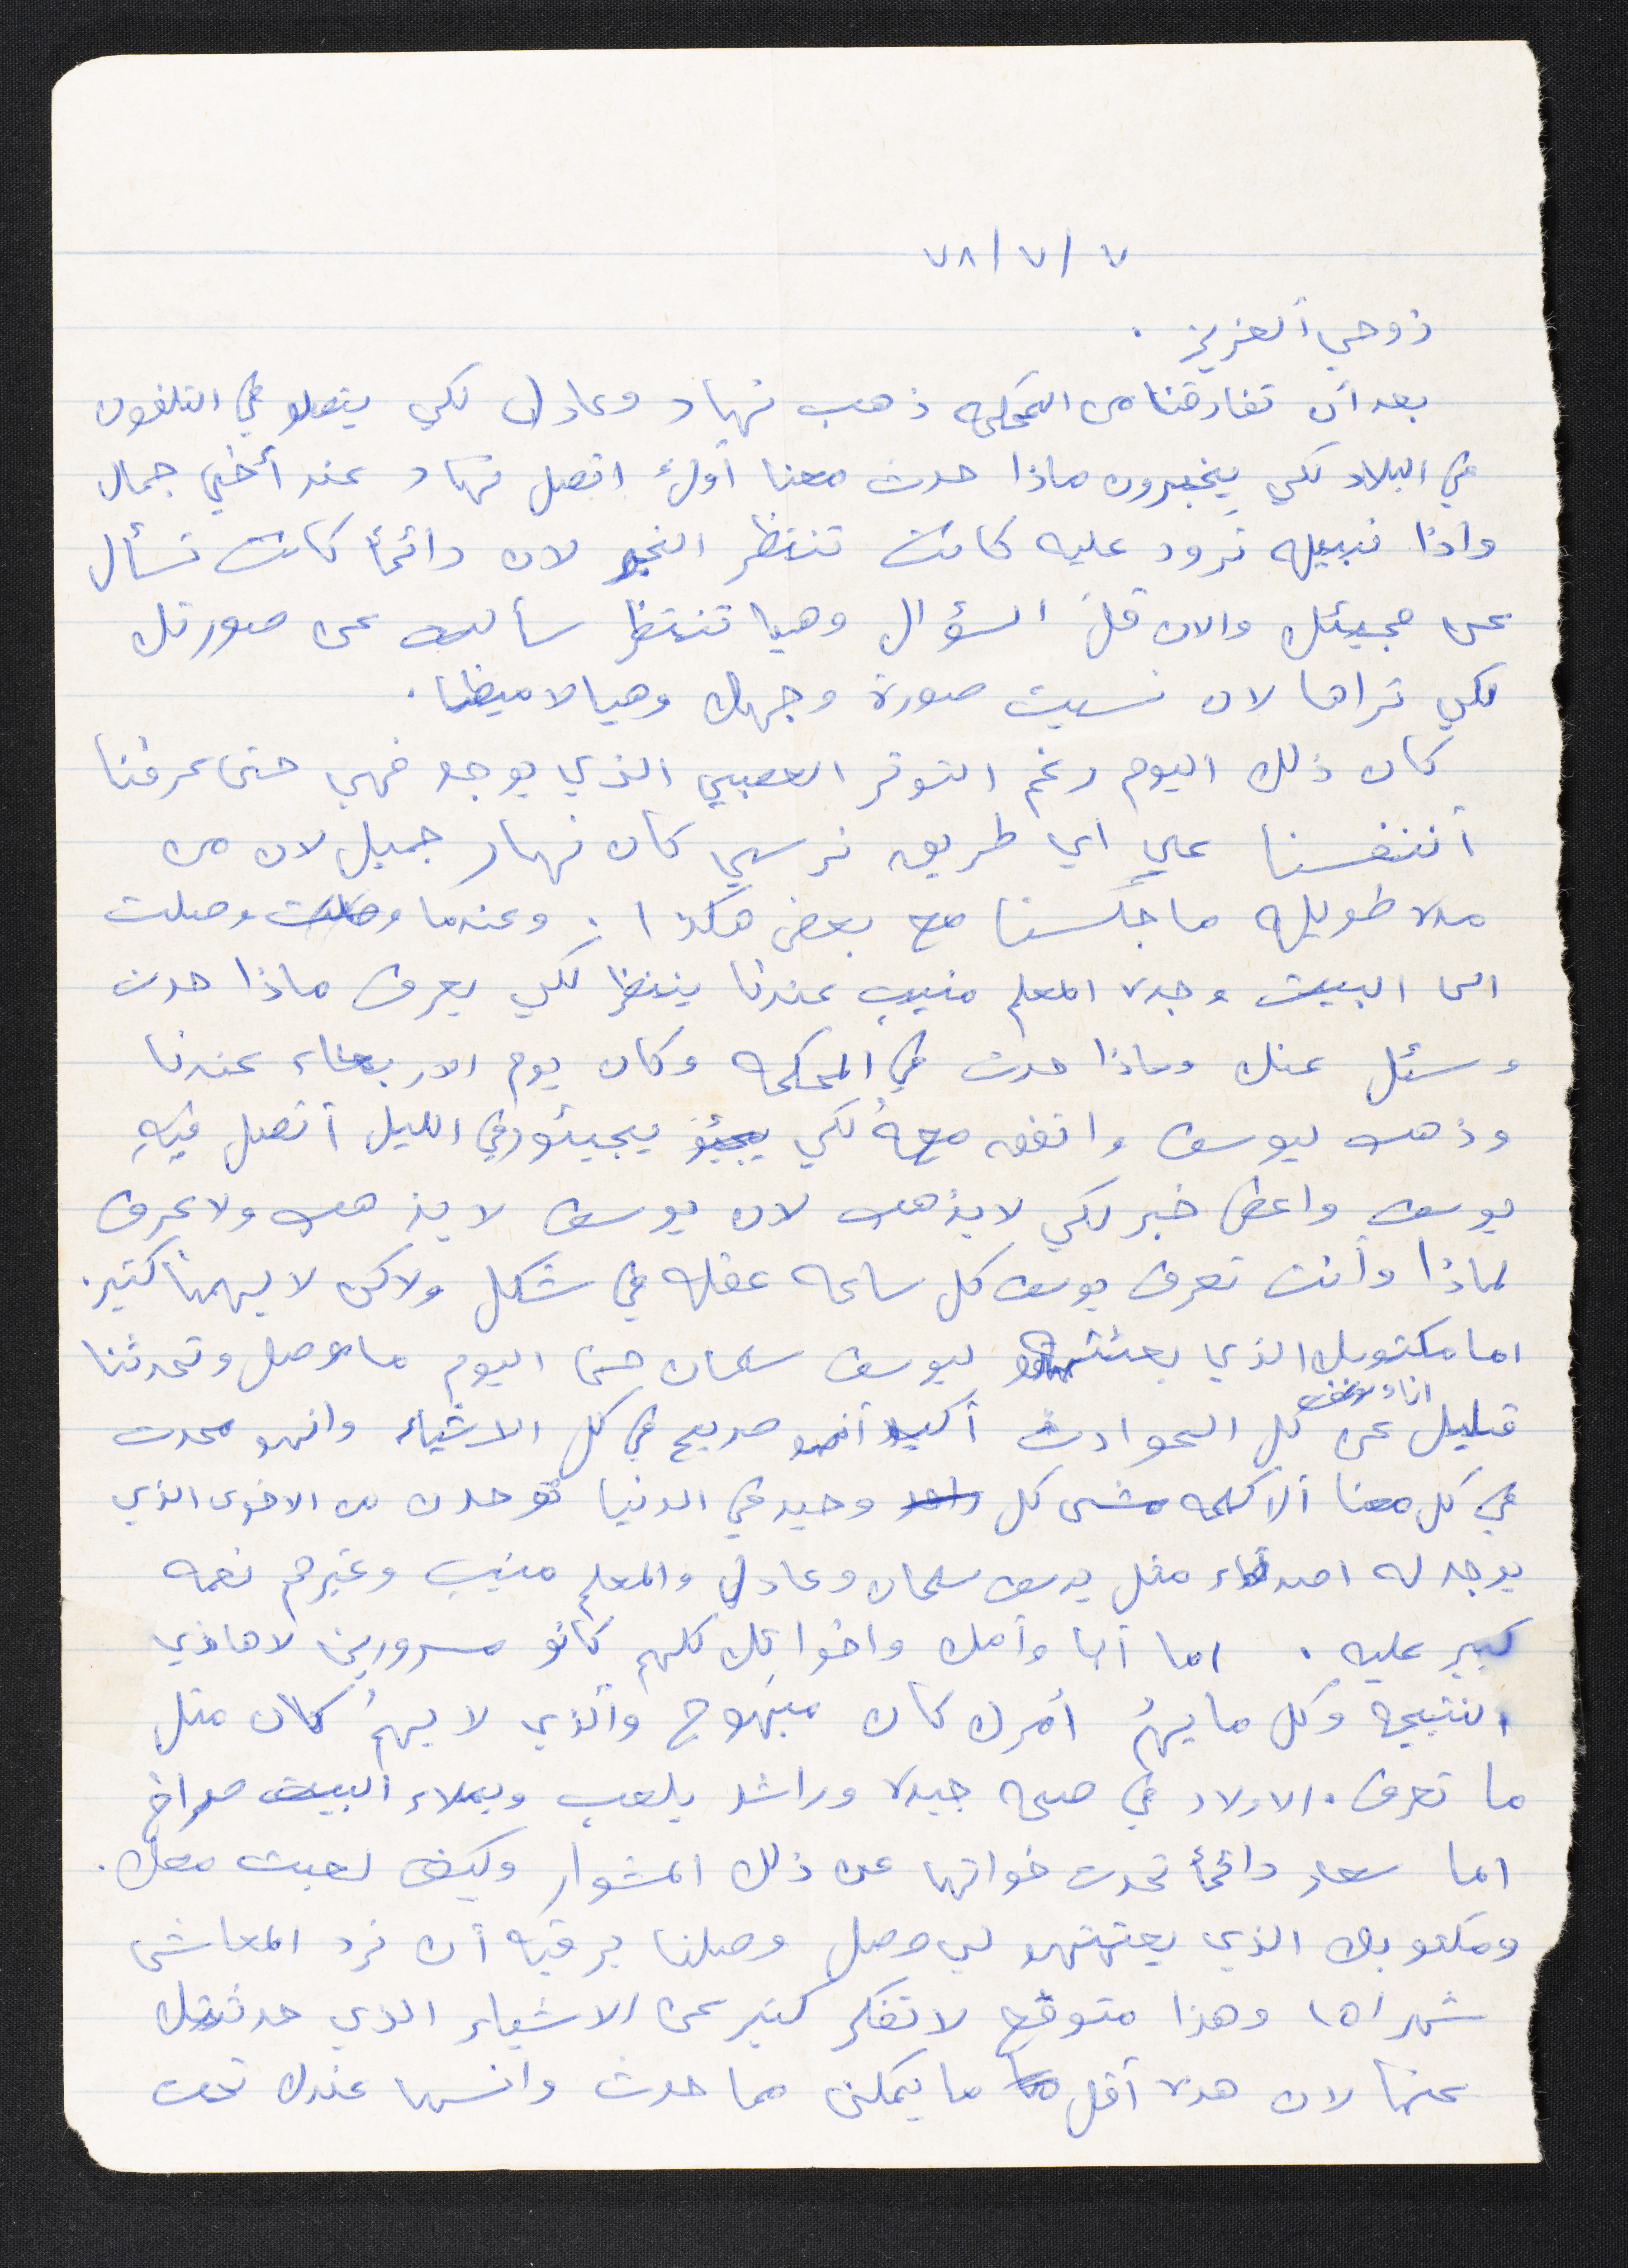 ٧/٧/٧٨
زوجي ألعزيز .
بعد أن تفارقنا من المحكمه ذهب نهاد وعادل لكي يتصلو في التلفون
في البلاد لكي يخبرون ماذا حدث معنا أولاً اتصل نهاد عند أخي جمال
واذا نبيله ترود عليه كانت تنتظر الخبر لان دائماً كانت تسأل
عن مجيئك والان قلة السؤال وهيا تنتظر سألت عن صورتك
لكي تراها لان نسيت صورة وجهك وهيا لا ميظنا .
كان ذلك اليوم رغم التوتر العصبي الذي يوجد فهي حتى عرفنا
أنتفسنا علي اي طريق نرسي كان نهار جميل لان من
مده طويله ما جلسنا مع بعض هكذا . وعندما وصلت
الى البيت وجده المعلم منيب عندنا ينتظر لكي يعرف ماذا حدث
وسئل عنك وماذا حدث في المحكمه وكان يوم الاربعاء عندنا
وذهب ليوسف واتفق معهُ لكي يجيئو في الليل أتصل فيهِ
يوسف واعطى خبر لكي لا يذهب لان يوسف لا يذهب ولا عرف
لماذا وأنت تعرف يوسف كل ساعه عقله في شكل ولاكن لا يهمنا كتير .
اما مكتوبك الذي بعثتهو ليوسف سلمان حتى اليوم ما وصل وتحدثنا
انا ويوسف
قليل عن كل الحوادث أكيد أنهو صديح في كل الاشياء وانهو محدت
في كل معنا ألاكلمه كل وحيد في الدنيا توحدن من الاخوى الذي
يوجد له اصدقاء مثل يوسف سلمان وعادل والمعلم منيب وغيرهم نعمه
كبير عليه . اما أنا وأمك واخواتك كلهم كانو مسرورين لاهاذي
النتيجه وكل ما يهمُ أمرك كان مبهوج وألذي لا يهمُ كان متل
ما تعرف . الاولاد في صحه جيده وراشد يلعب ويملاء ألبيت صراخ
اما سعاد دائماً تحدت خواتها عن ذلك المشوار وكيف لعبت معك .
ومكتوبك الذي بعتتهو لي وصل وصلنا برقيه أن نرد المعاشى
شهراها وهذا متوقع لا تفكر كتير عن الاشياء الذي حدثتك
عنها لان هده أقل ما يمكن مما حدث وانسها عندك تحت